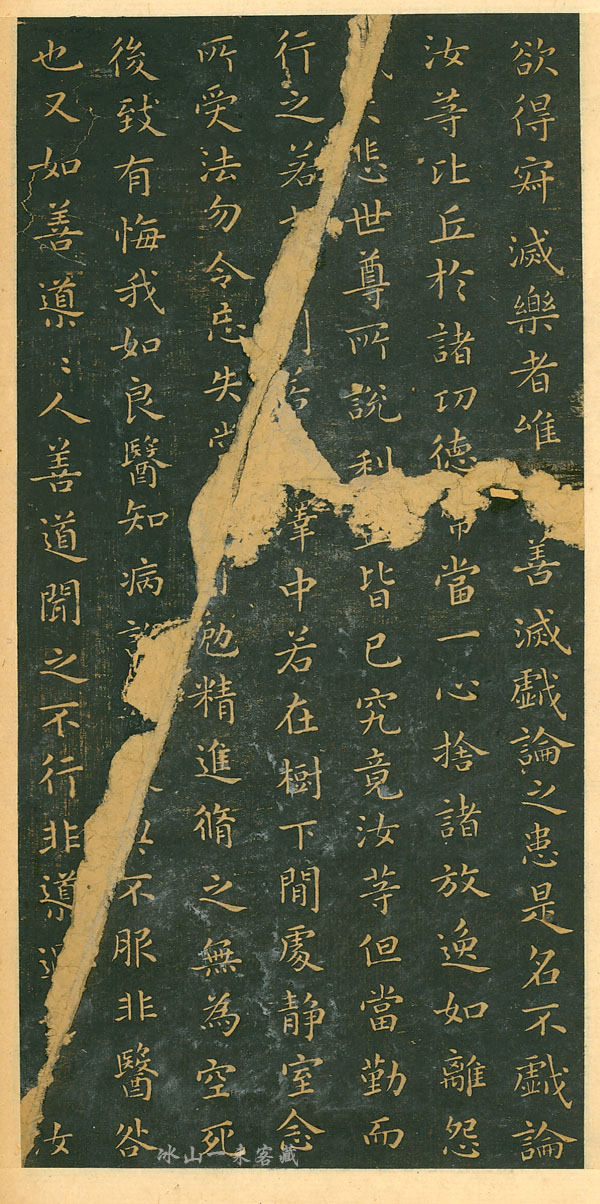 欲得寂滅樂者唯善滅戯論之患是名不戯論
汝等比丘於諸功德常當一心捨諸放逸如離怨
悲世尊所說利皆已究竟汝等但當勤而
行之若若中若在樹下閒處静室念
所受法勿令忘失勉精進脩之無為空死
後致有悔我如良醫知病不服非醫咎
也又如善導〻人善道聞之不行非導汝
冰山一来客藏